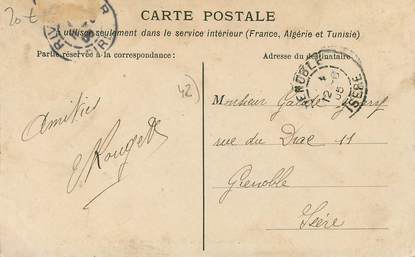 20-t
CARTE POSTALE
A utiliser seulement dans le service intérieur (France, Algérie et Tunisie)
Partie réservée à la correspondance :
Adresse du destinataire
42
Amitiés
E Rougett
Monsieur
rue du Drac 11
Grenoble
Isère
GRENOBLE
ISERE
4
12 - 6
05